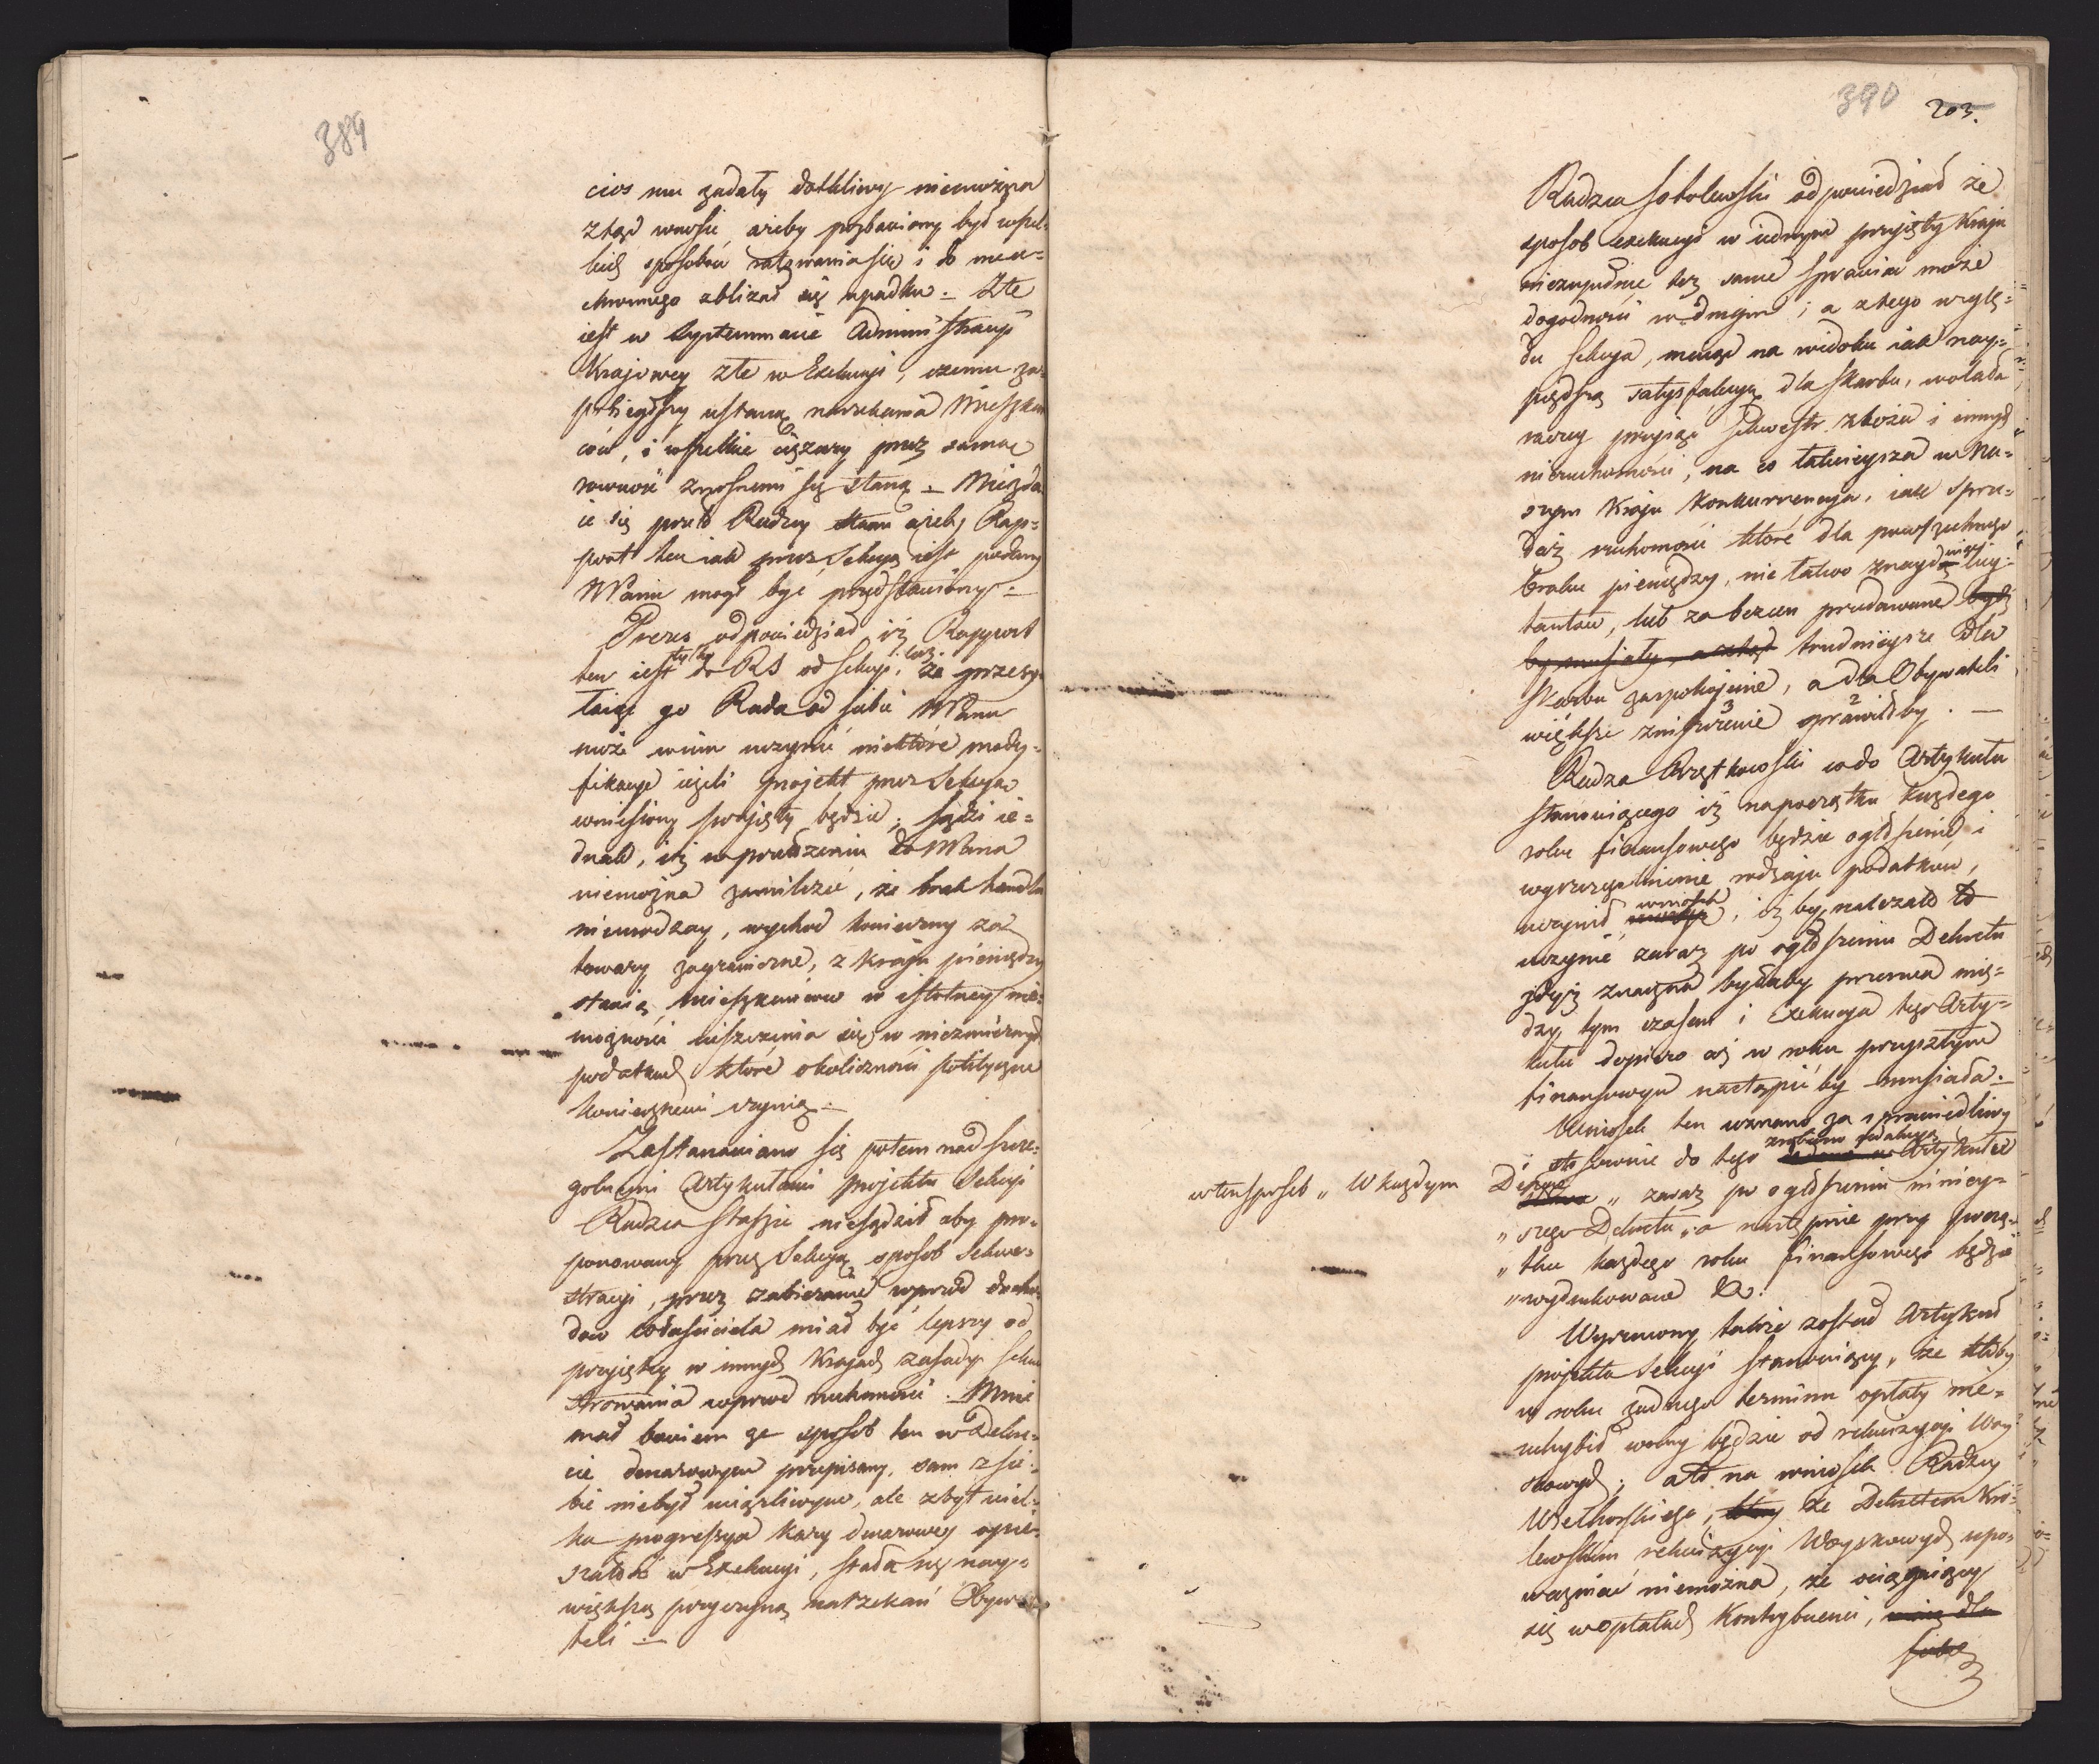 389
cios mu zadały dotkliwy niemożna
ztąd wnosić ażeby pozbawiony był wszel=
kich sposobów ratowania się i do nieu=
chronnego zbliżał się upadku. – Złe
iest w Systemmacie Administracyi
Krajowey złe w Exekucyi, czemu za=
pobiegłszy ustaną narzekania Mieszkań
ców, i wszelkie ciężary przez samą
rowność znośnemi się staną. – Niezda
ie się przeto Radzcy Stanu ażeby Rap=
port ten iak przez Sekcyą iest podany
NPanu mogł być przedstawiony. –
Prezes odpowiedział iż Rapport
ten iest tylko do RS od Sekcyi, lecz że przesy=
łaiąc go Rada od siebie NPanu
może w nim uczynić niektóre mody=
fikacye ieżeli projekt przez Sekcyą
wniesiony przyięty będzie; sądzi ie=
dnak, iż w przedłożeniu do NPana
niemożna zamilczeć, że brak handlu
nieurodzay, wychod konieczny za
towary zagraniczne, z kraju pieniędzy
stawią mieszkańców w istotney nie=
możności uiszczenia się w niezmiernych
podatkach które okoliczności polityczne
koniecznemi czynią. –
Zastanawiano się potem nad szcze=
gołnemi Artykułami projektu Sekcyi
Radzca Staszic niesądził aby pro=
ponowany przez Sekcyą sposob Sekwe=
stracyi, przez zabieranie wprzod docho=
dow właściciela miał być lepszy od
przyiętey w innych Krajach zasady sekwe
strowania wprzod ruchomości. – Mnie
mał bowiem że sposob ten w Dekre=
cie dmarowym przepisany, sam z sie=
bie niebył uciążliwym, ale zbyt wiel=
ka progressya kary dmarowey opie=
szałość w Exekucyi, stała się nay=
większą przyczyną narzekań Obywa
teli. –
390
203.
Radzca Sobolewski odpowiedział że
sposob exekucyi w iednym przyięty Kraju
niezupełnie też same sprawiać może
dogodności w drugim; a z tego wzglę=
du Sekcya, maiąc na widoku iak nay=
prędszą satysfakcyą dla Skarbu, wolała
raczey przyiąć Sekwestr zboża i innych
nieruchomości, na co łatwieysza w Na=
szym Kraju Konkurrencya, iak sprze=
daż ruchomości które dla powszechnego
braku pieniędzy, nie łatwo znaydą licy=
tantow, lub za bezcen przedawane były
by musiały, a ztąd trudnieysze dla
Skarbu zaspokojenie, a dla Obywateli
większe zniszczenie sprawiłby. –
Radzca Krzętkowski co do Artykułu
stanowiącego iż napoczątku każdego
roku finansowego będzie ogłoszenie i
wyszczegolnienie rodzaju podatków,
uczynił wniosek, iż by należało to
uczynić zaraz po ogłoszeniu Dekretu
gdyż znaczna byłaby przerwa mię=
dzy tym czasem i Exekucya tego Arty=
kułu dopiero aż w roku przyszłym
finansowym nastąpić by musiała. –
Wniosek ten uznano za sprawiedliwy
i stosownie do tego zrobiono redakcyą Artykułu
w ten sposob „ W każdym Depar „ zaraz po ogłoszeniu niniey=
„ szego Dekretu „ a następnie przy począ=
„ tku każdego roku finansowego będzie
„ wydrukowane &a.
Wyrzucony także został Artykuł
projektu Sekcyi stanowiący, że ktoby
w roku żadnego terminu opłaty nie=
uchybił wolny będzie od rekwizycyi Woy
skowych; ato na wniosek Radzcy
Wielhorskiego, który że Dekretem Kró=
lewskim rekwizycyi Woyskowych upo=
ważniać niemożna, że ociągaiący
się w opłatach Kontrybuenci, maią dla
siebie